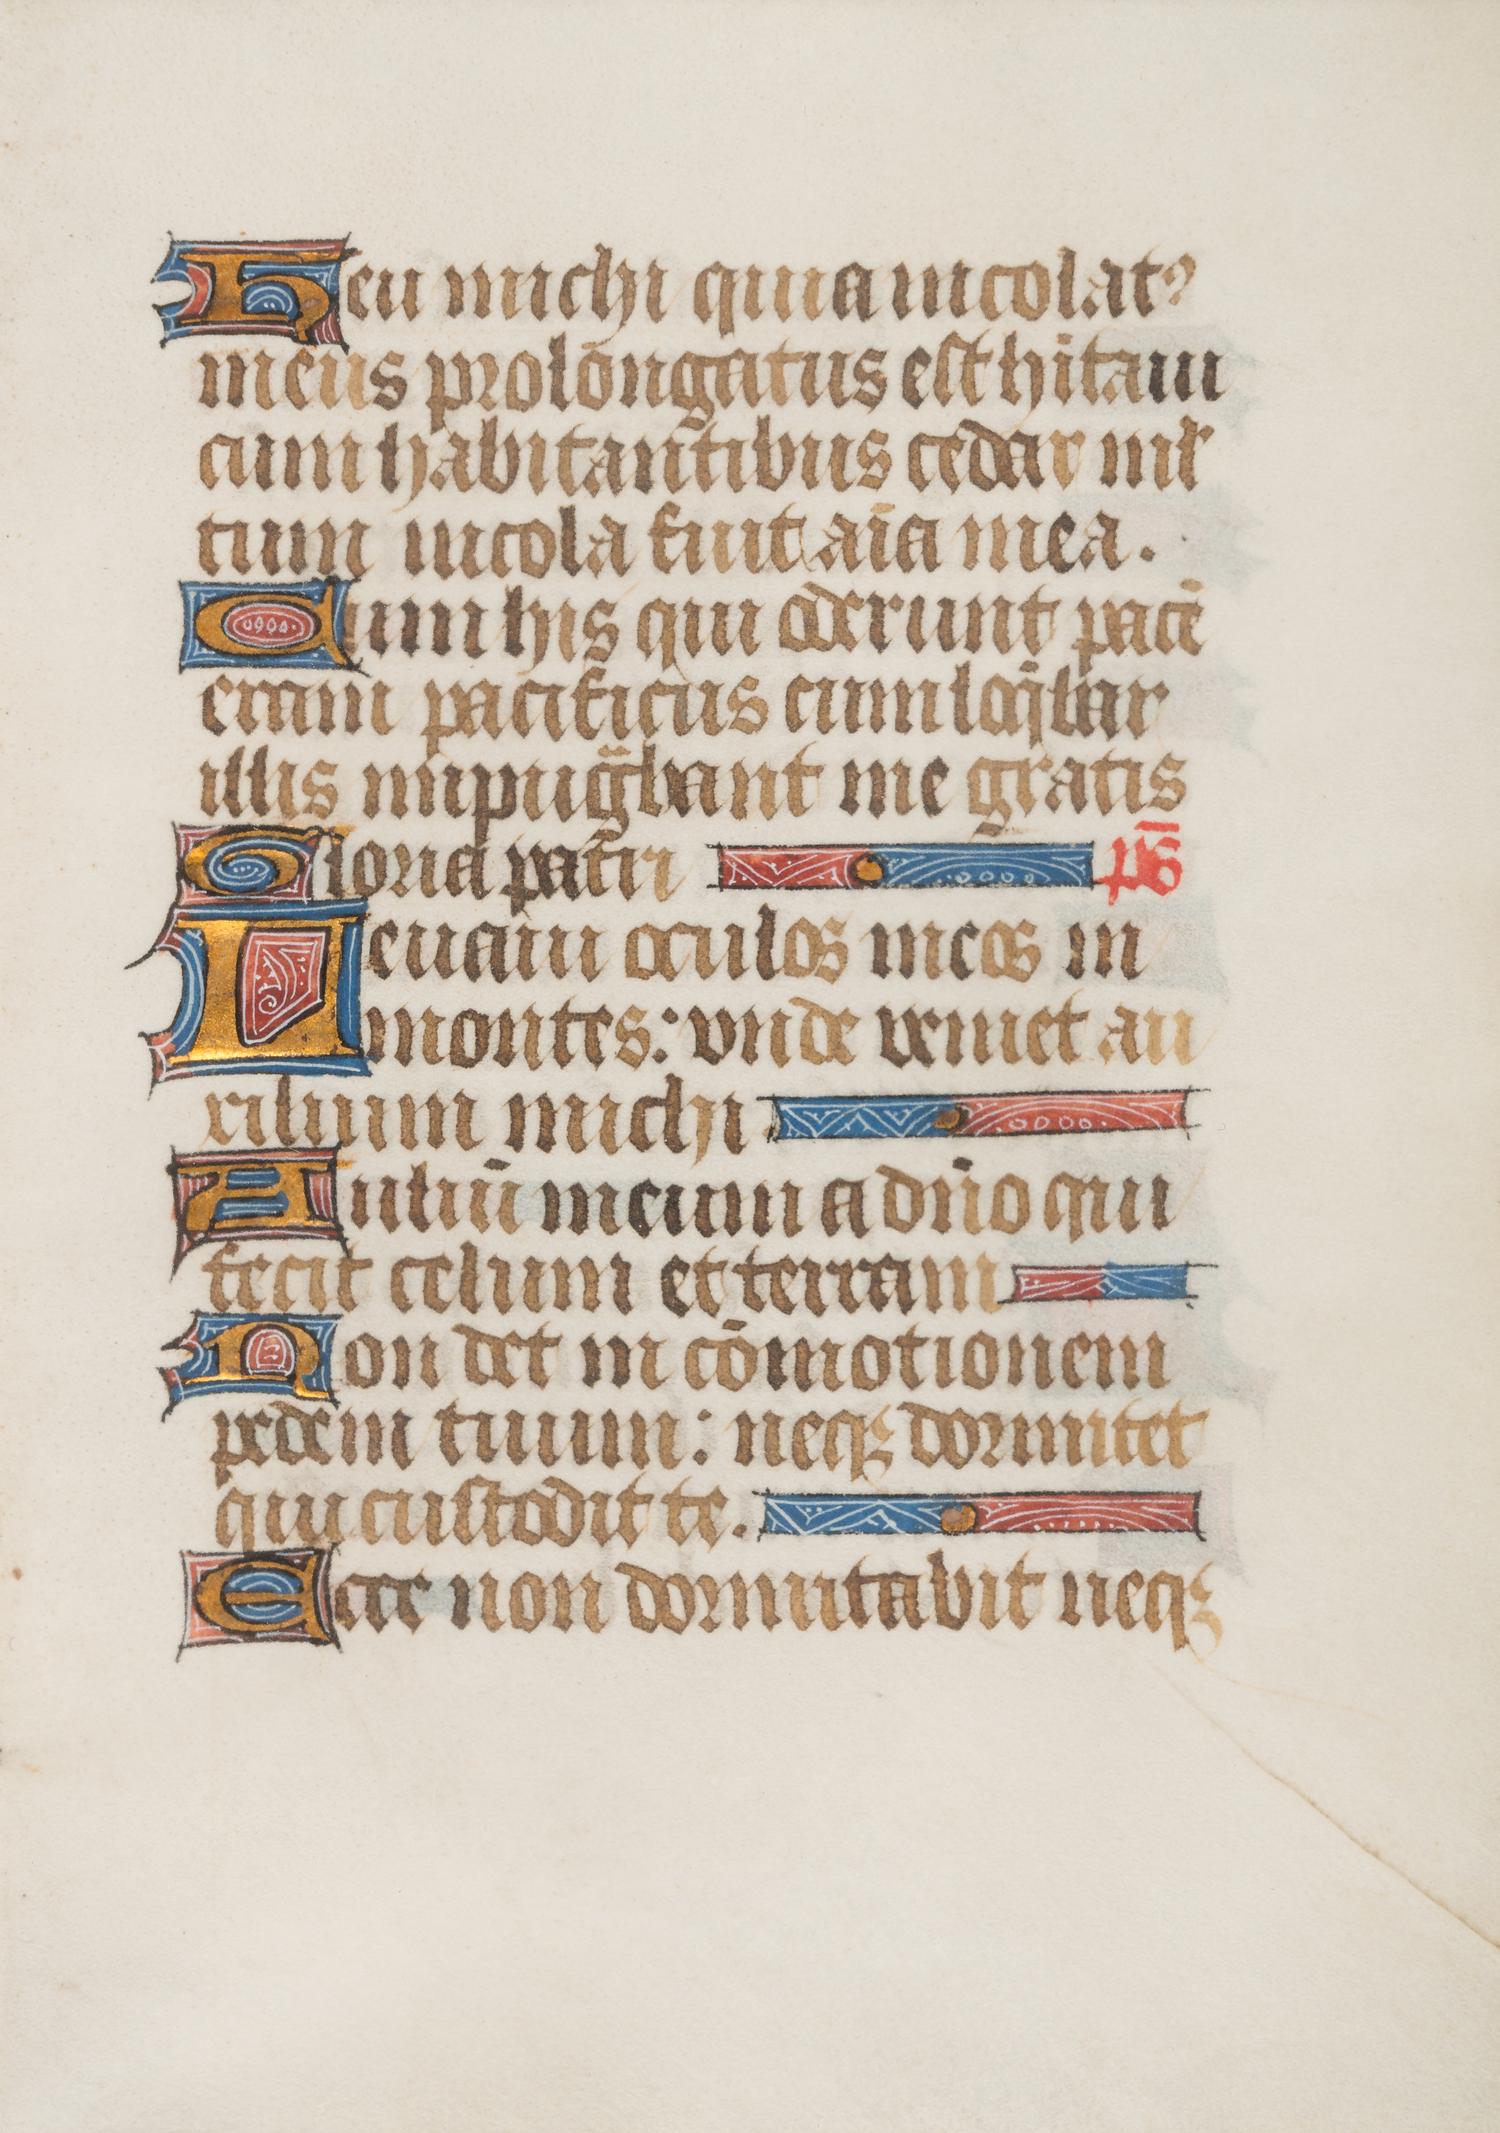 Heu michi quia incolatꝰ
meus prolōngatus est hitaui
cum habitantibus cedar ml̓
tum incola fuit aīa mea.
Cum his qui oderunt pacē
eram pacificus cum loq̄bar
illis inpug̈bant me gratis
Gloria patri p̄s
Leuaui oculos meos in
montes: vnde veniet au
xilium michi
Auliū meum a dn̄o qui
fecit celum et terram
Non det in cōmotionem
pedem tuum: neqꝫ dormitet
qui custodit te.
Ecce non dormitabit neqꝫ